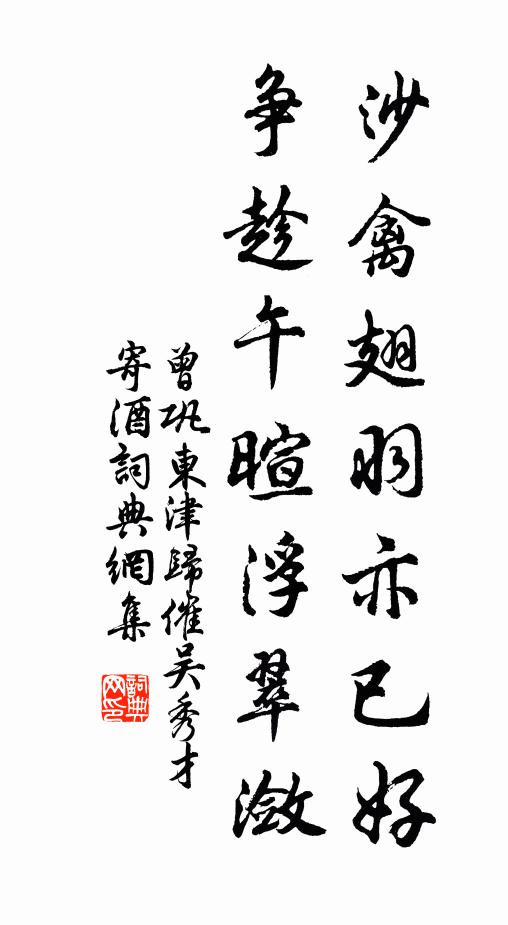 沙禽翅羽亦已好
争趁午暄浮翠瀲
曾巩東津歸催吴秀才
寄酒詞典網集
詞典網印